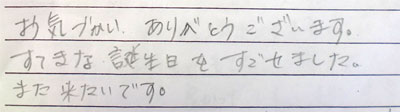 お気づかい、ありがとうございます。
すてきな誕生日をすごせました。
また来たいです。